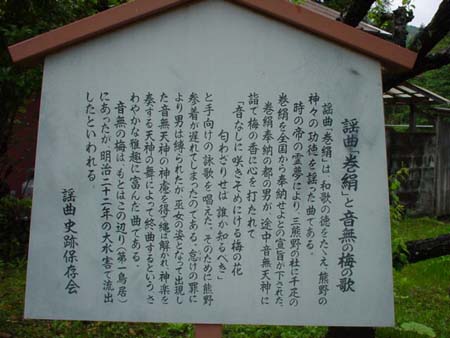 謡曲「巻絹」と音無の梅の歌
謡曲「巻絹」は、和歌の徳をたたえ、熊野の
神々の功徳を謡った曲である。
時の帝の霊夢により、三熊野の社に千疋の
巻絹を全国から奉納せよとの宣旨が下された。
巻絹奉納の都の男が、途中音無天神に
詣で梅の香に心を打たれて
「音なしに咲きそめにける梅の花
匂わざりせば誰か知るべき」
と手向けの詠歌を唱えた。そのために熊野
参着が遅れてしまったのである。怠けの罪に
より男は縛られたが、巫女の姿となって出現し
た音無天神の神慮を得て縄は解かれ、神楽を
奏する天神の舞によって終曲するという、さ
わやかな雅趣に富んだ曲である。
音無の梅は、もとはこの辺り(第一鳥居)
にあったが、明治二十二年の大水害で流出
したといわれる。
謡曲史跡保存会